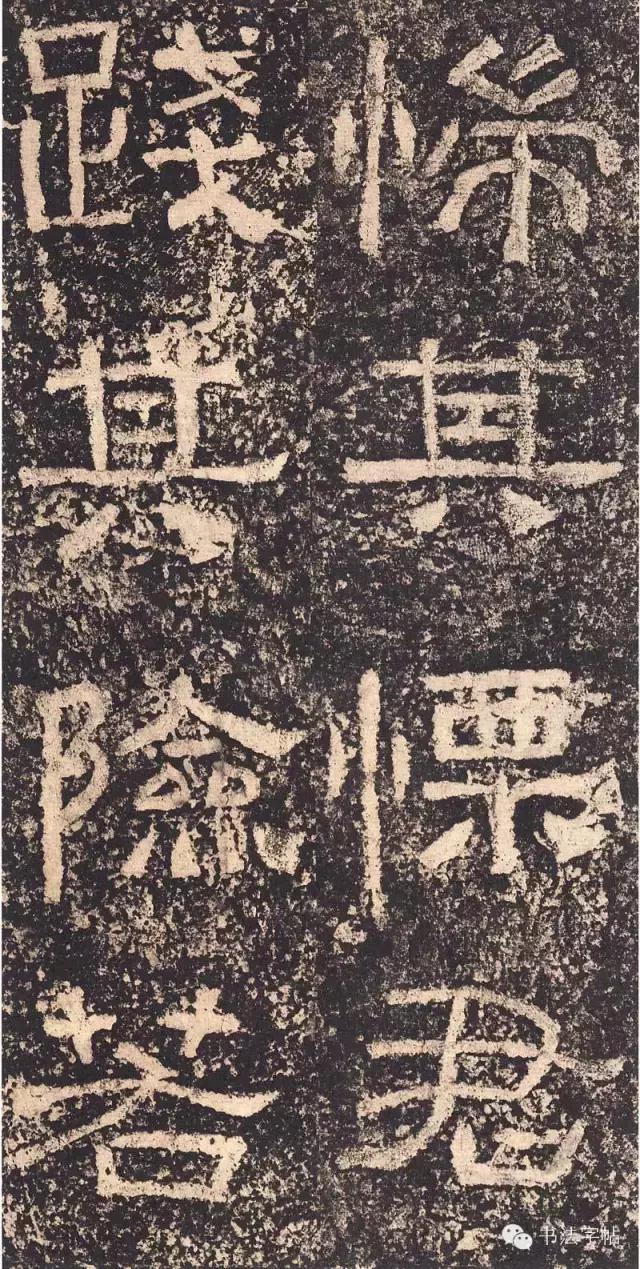 惴其慄君
踐其險若
书法字帖